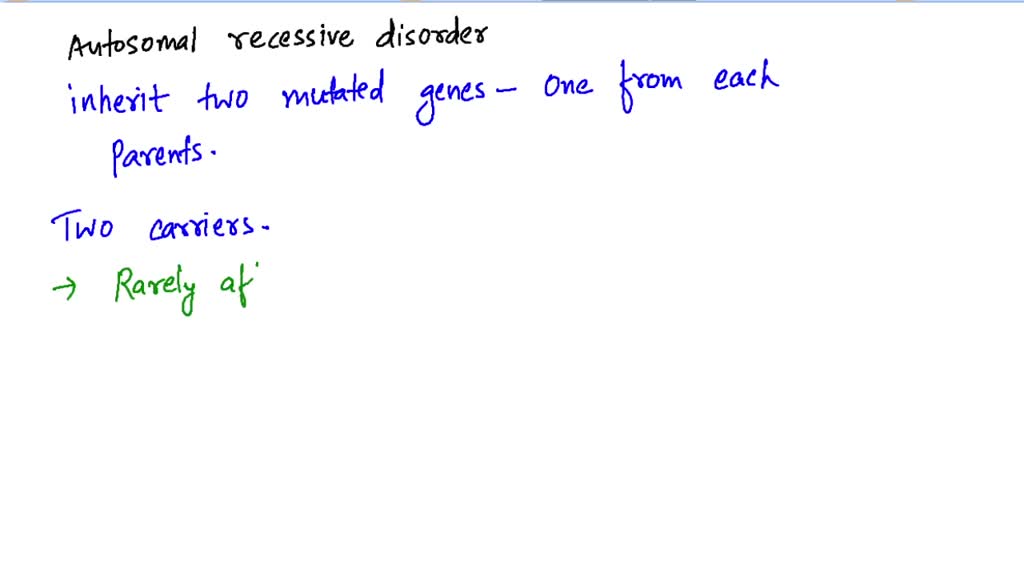 Autosomal recessive disorder
inherit two mutated genes - one from each
Parents.
Two carriers.
→ Rarely af